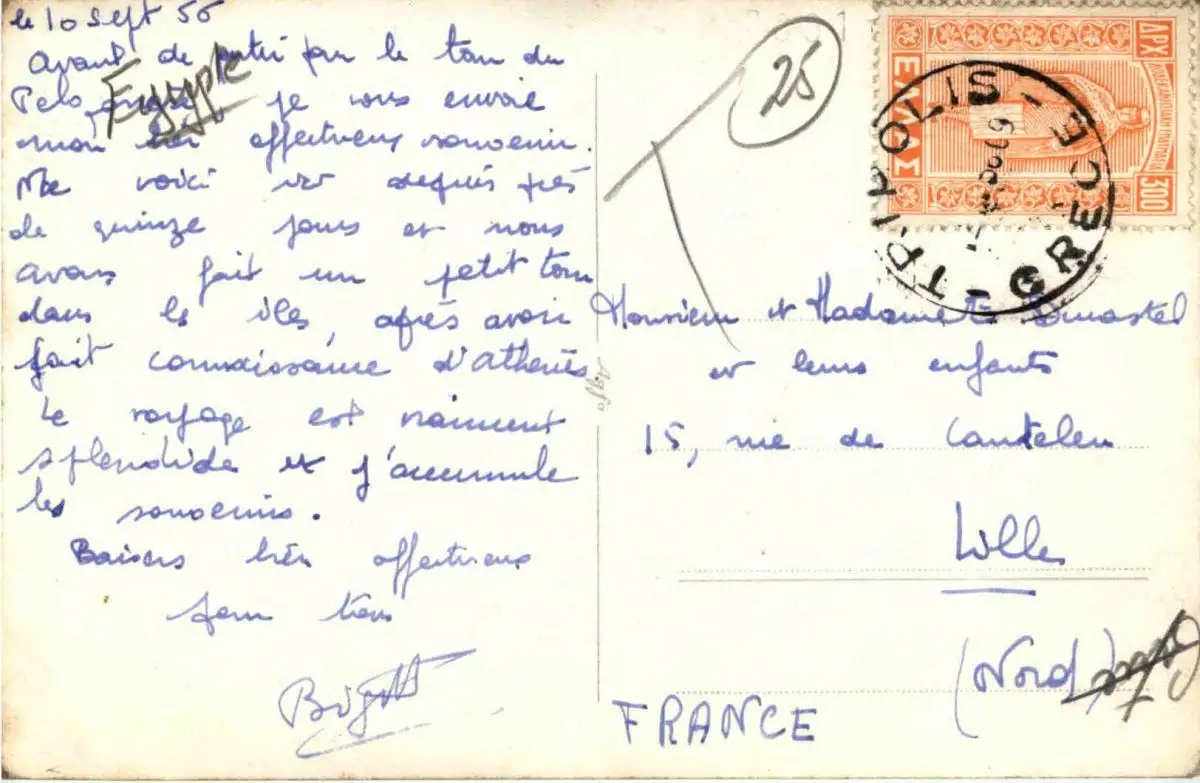 le 10 Sept 56
Avant de partir pour le tour du
Egypte
je vous envoie
mon très affectueux souvenir.
Me voici ici depuis près
de quinze jours et nous
avons fait un petit tour
dans les îles, après avoir
fait connaissance d'Athènes
Le voyage est vraiment
splendide et j'accumule
les souvenirs.
Baisers très affectueux
pour tous
25
T
ΔΡΧ
ΕΛΛΑΣ
300
TRIPOLIS
GRECE
Agfa
Monsieur et Madame
et leurs enfants
15, rue de Canteleu
Lille
(Nord)
FRANCE